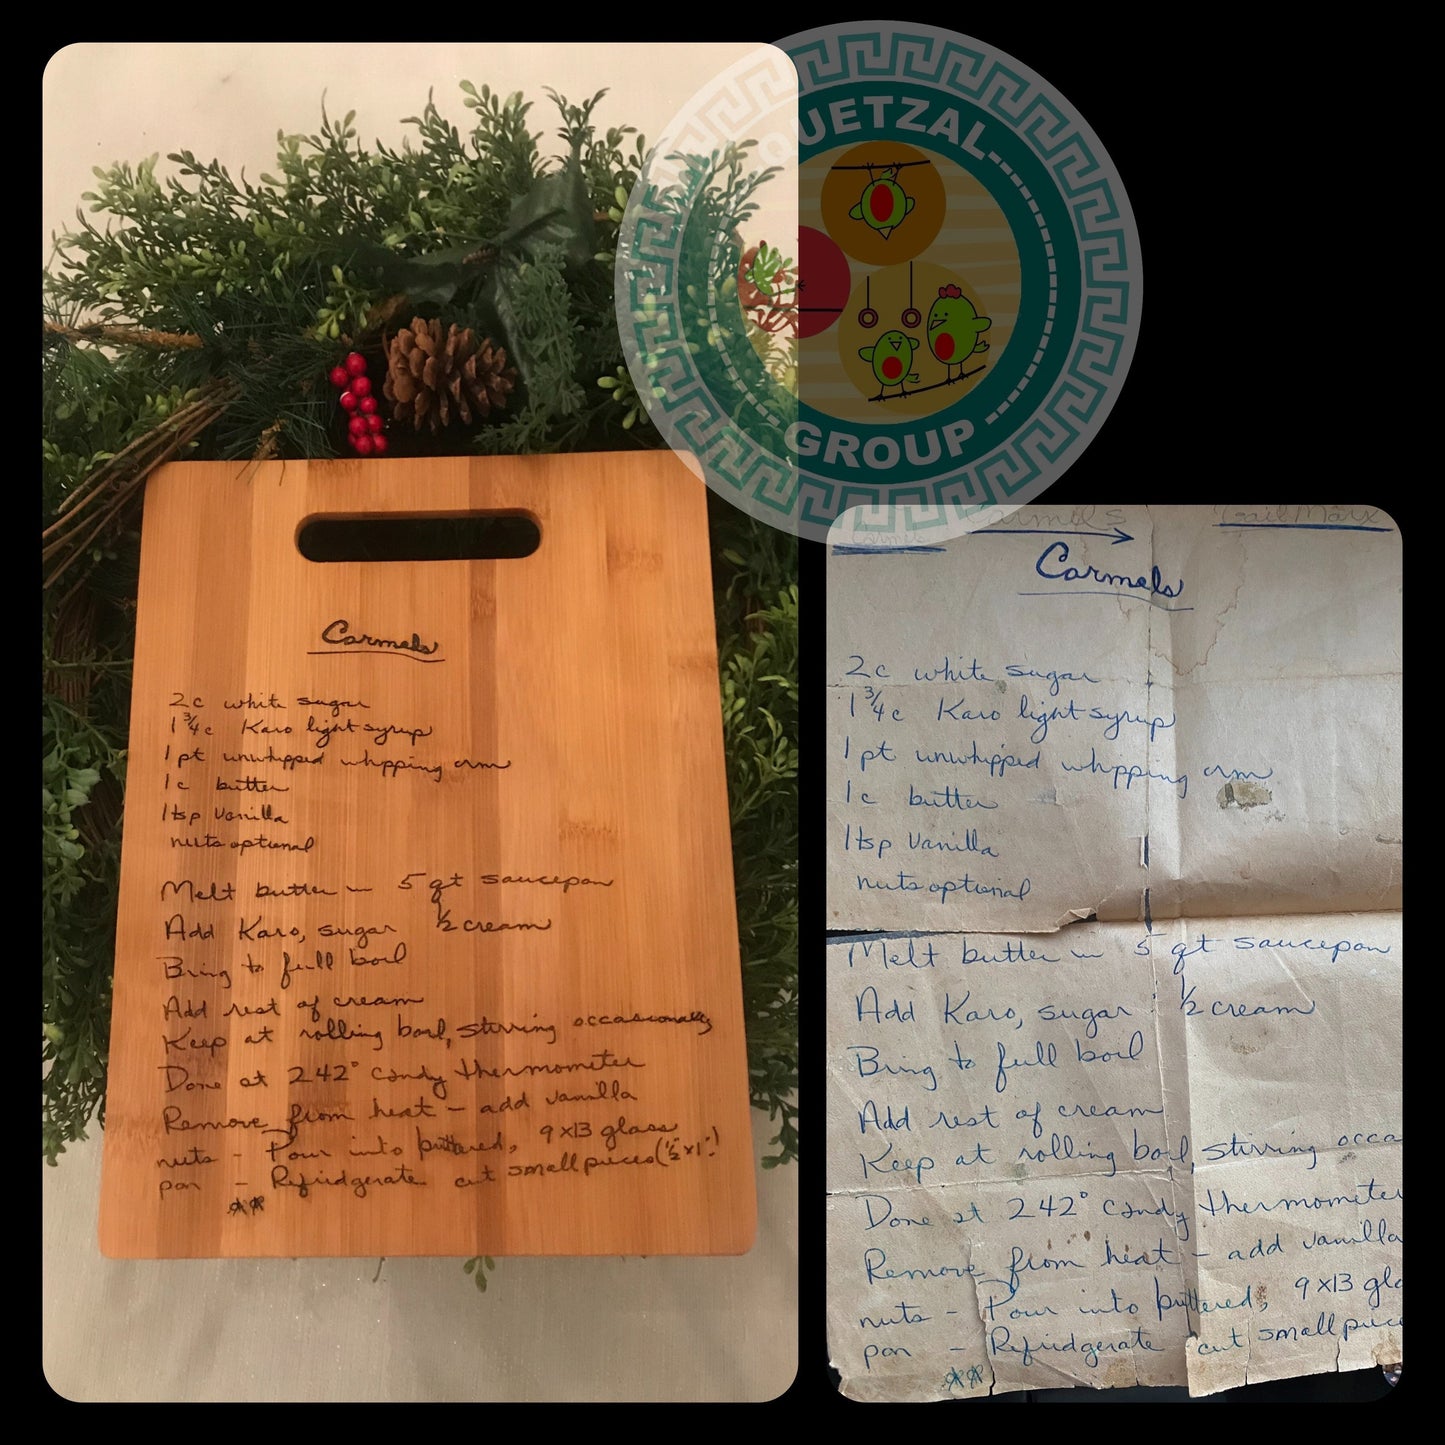 QUETZAL
GROUP
Carmels
2c white sugar
1 3/4 c Karo light syrup
1 pt unwhipped whipping crm
1c butter
1 tsp vanilla
nuts optional
Melt butter in 5 qt saucepan
Add Karo, sugar 1/2 cream
Bring to full boil
Add rest of cream
Keep at rolling boil, stirring occasionally
Done at 242° candy thermometer
Remove from heat - add vanilla
nuts - Pour into buttered, 9x13 glass
pan - Refridgerate cut small pieces (1/2" x 1")
Carmels
Gail Marx
Carmels
2c white sugar
1 3/4 c Karo light syrup
1 pt unwhipped whipping crm
1c butter
1 tsp vanilla
nuts optional
Melt butter in 5 qt saucepan
Add Karo, sugar 1/2 cream
Bring to full boil
Add rest of cream
Keep at rolling boil, stirring occa
Done at 242° candy thermometer
Remove from heat - add vanilla
nuts - Pour into buttered, 9x13 gla
pan - Refridgerate cut small piece